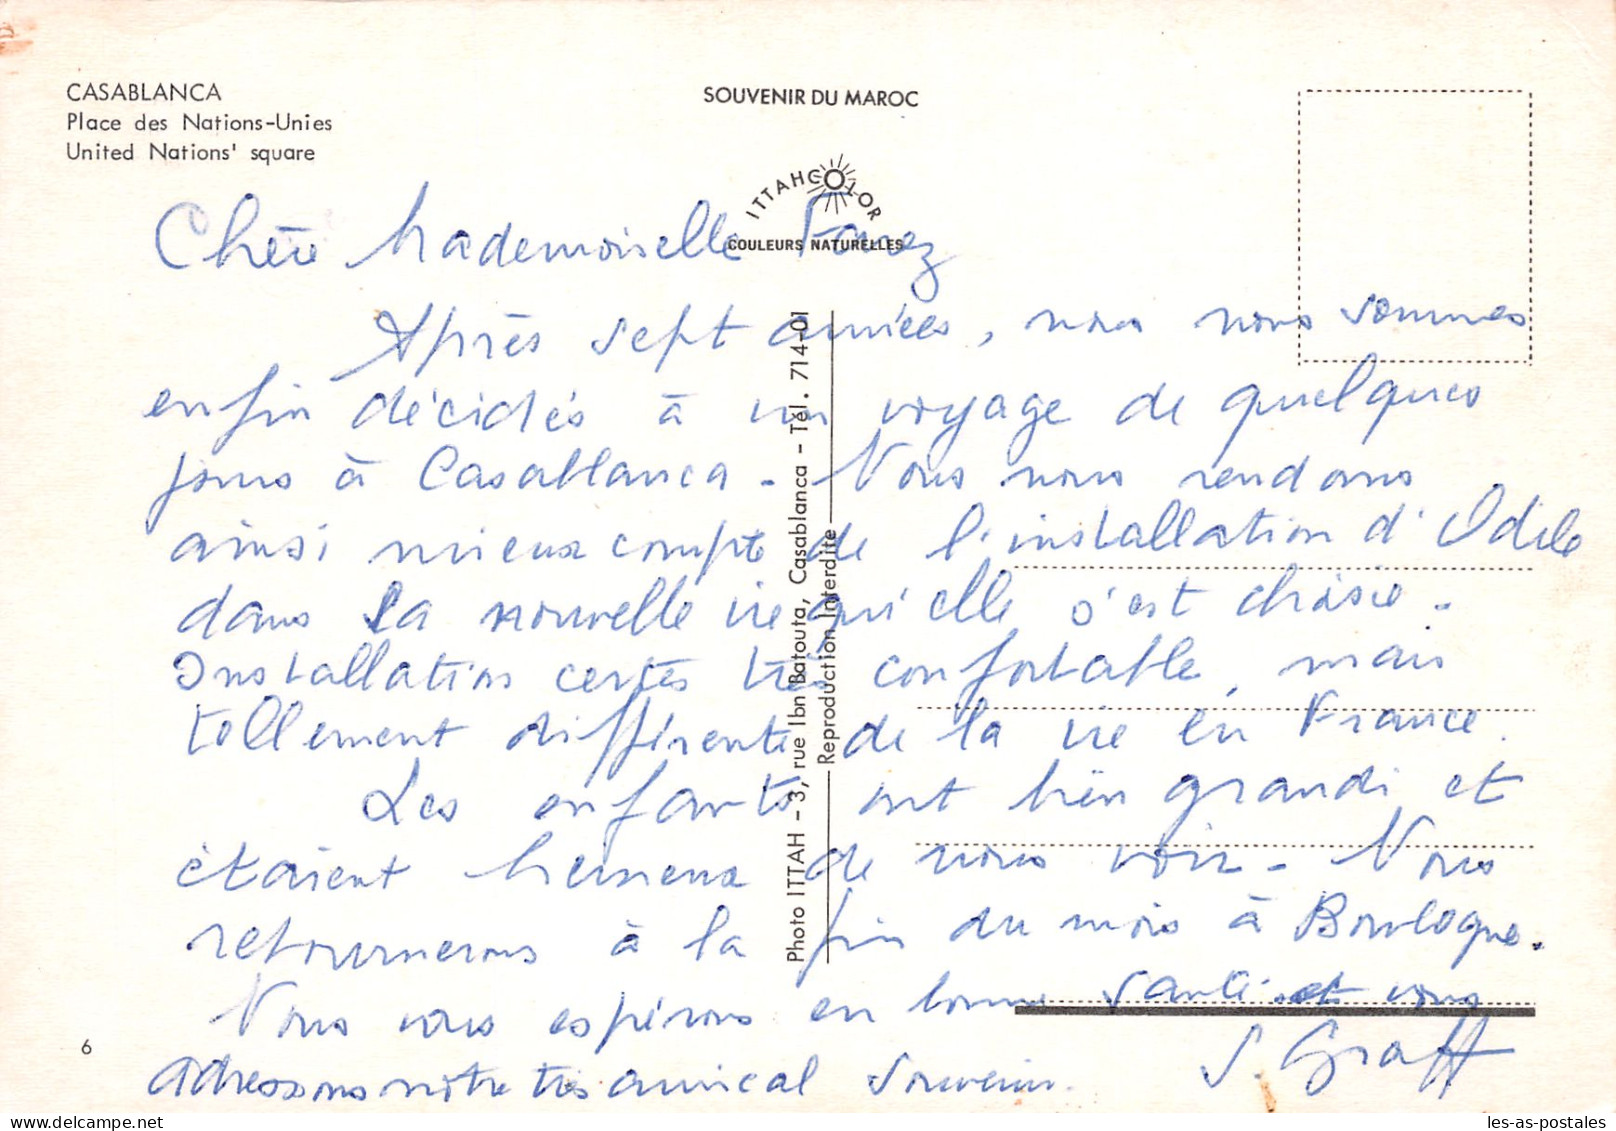 CASABLANCA
Place des Nations-Unies
United Nations' square
SOUVENIR DU MAROC
ITTAHCOLOR
COULEURS NATURELLES
Chère Mademoiselle
Après sept années, nous nous sommes
enfin décidés à un voyage de quelques
jours à Casablanca - Nous nous rendons
ainsi mieux compte de l'installation d'Odile
dans la nouvelle vie qu'elle s'est choisie.
Installation certes très confortable, mais
tellement différente de la vie en France.
Les enfants ont bien grandi et
étaient heureux de nous voir - Nous
retournerons à la fin du mois à Boulogne.
Nous vous espérons en bonne santé et vous
adressons notre très amical souvenir.
S. Graff
Photo ITTAH - 3, rue Ibn Batouta, Casablanca - Tél. 714-01
Reproduction Interdite
6
les-as-postales